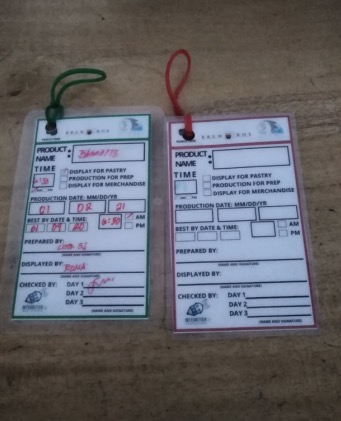 BREW BOX
PRODUCT NAME :
TIME
DISPLAY FOR PASTRY
PRODUCTION FOR PREP
DISPLAY FOR MERCHANDISE
PRODUCTION DATE: MM/DD/YR
01 02 21
BEST BY DATE & TIME:
01 09 6:30 AM
PM
PREPARED BY:
(NAME AND SIGNATURE)
DISPLAYED BY:
(NAME AND SIGNATURE)
CHECKED BY: DAY 1
DAY 2
DAY 3
(NAME AND SIGNATURE)
BREW BOX
PRODUCT NAME :
TIME
DISPLAY FOR PASTRY
PRODUCTION FOR PREP
DISPLAY FOR MERCHANDISE
PRODUCTION DATE: MM/DD/YR
BEST BY DATE & TIME:
AM
PM
PREPARED BY:
(NAME AND SIGNATURE)
DISPLAYED BY:
(NAME AND SIGNATURE)
CHECKED BY: DAY 1
DAY 2
DAY 3
(NAME AND SIGNATURE)